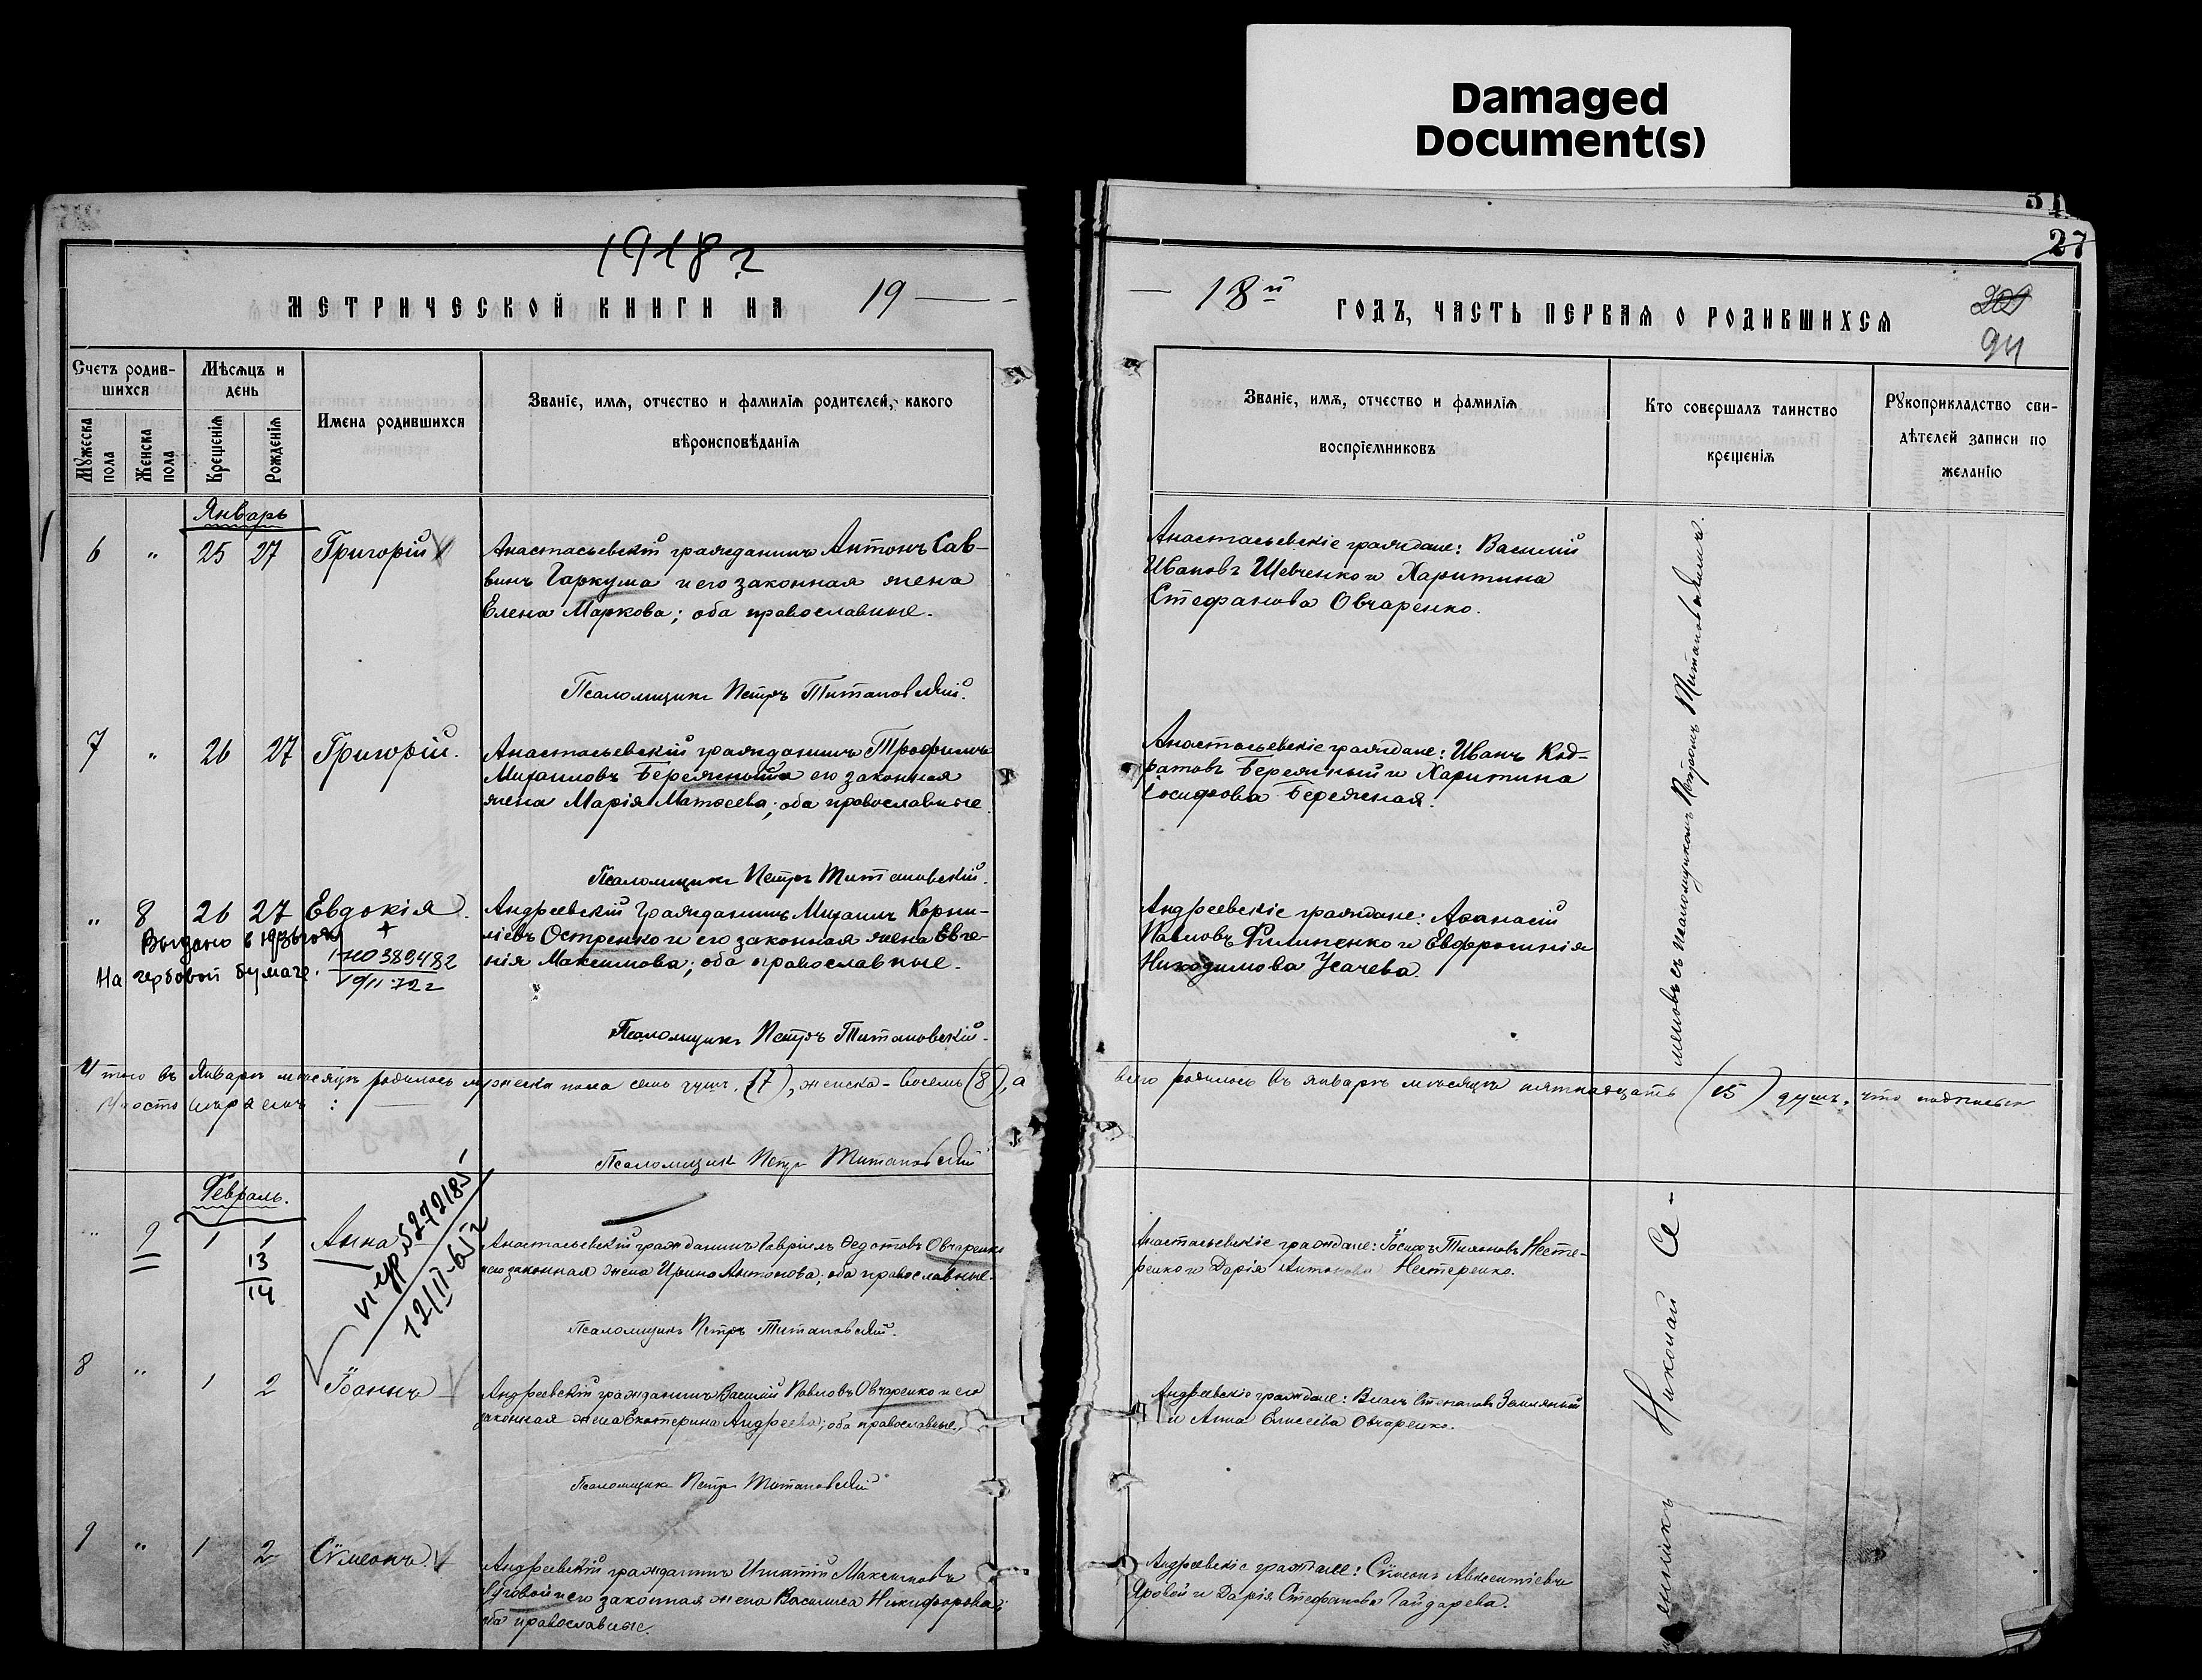 Damaged
Document(s)
27
1918 г
МЕТРИЧЕСКОЙ КНИГИ НА 19
Счетъ родив-
шихся
Мужеска
пола
Женска
пола
Мѣсяцъ и
день
Крещенія
Рожденія
Имена родившихся
Званіе, имя, отчество и фамилія родителей, какого
вѣроисповѣданія
Январь
6 " 25 27 Григорій
Анастасьевскій гражданинъ Антонъ Сав-
винъ Гаркума и его законная жена
Елена Маркова; оба православные.
Псаломщикъ Петръ Титановскій.
7 " 26 27 Григорій.
Анастасьевскій гражданинъ Трофимъ
Михаиловъ Бережный и его законная
жена Марія Матѳеева; оба православные
Псаломщикъ Петръ Титановскій.
" 8 26 27 Евдокія.
Выдано в
На гербовой бумаге.
389482
Андреевскій гражданинъ Михаилъ Корни-
ліевъ Остренко и его законная жена Евге-
нія Максимова; оба православные.
Псаломщикъ Петръ Титановскій.
Итого въ Январѣ мѣсяцѣ родилось мужеска пола семь душъ (7), женска - восемь (8), а
Псаломщикъ Петръ Титановскій
Февраль.
" 9 1 1 Анна
13
14
VI-ер № 272185
12/II-65 г
Анастасьевскій гражданинъ Гавріилъ Ѳедотовъ Овчаренко
и его законная жена Ирина Антонова; оба православные.
Псаломщикъ Петръ Титановскій.
8 " 1 2 Іоаннъ
Андреевскій гражданинъ Василій Павловъ Овчаренко и его
законная жена Екатерина Андреева; оба православные.
Псаломщикъ Петръ Титановскій
9 " 1 2 Сѵмеонъ.
Андреевскій гражданинъ Игнатій Максимовъ
Луговой и его законная жена Василиса Никифорова;
оба православные.
18й ГОДЪ, ЧАСТЬ ПЕРВАЯ О РОДИВШИХСЯ
94
Званіе, имя, отчество и фамилія
воспріемниковъ
Кто совершалъ таинство
крещенія
Рукоприкладство сви-
дѣтелей записи по
желанію
Анастасьевскіе граждане: Василій
Ивановъ Шевченко и Харитина
Стефанова Овчаренко.
Анастасьевскіе граждане: Иванъ Код-
ратовъ Бережный и Харитина
Іосифова Бережная.
Андреевскіе граждане: Аѳанасій
Павловъ Филипенко и Евфросинія
Никодимова Усачева.
всего родилось въ январѣ мѣсяцѣ пятнадцать (15) душъ, что подписью
Анастасьевскіе граждане: Іосифъ Несте-
ренко и Дарія Антонова Нестеренко.
Андреевскіе граждане: Власъ Степановъ Земляный
и Анна Елисеева Овчаренко.
Андреевскіе граждане: Сѵмеонъ Авксентіевъ
Яровой и Дарія Стефанова Гайдарева.
Николай Се-
меновъ съ псаломщикомъ Петромъ Титановскимъ.